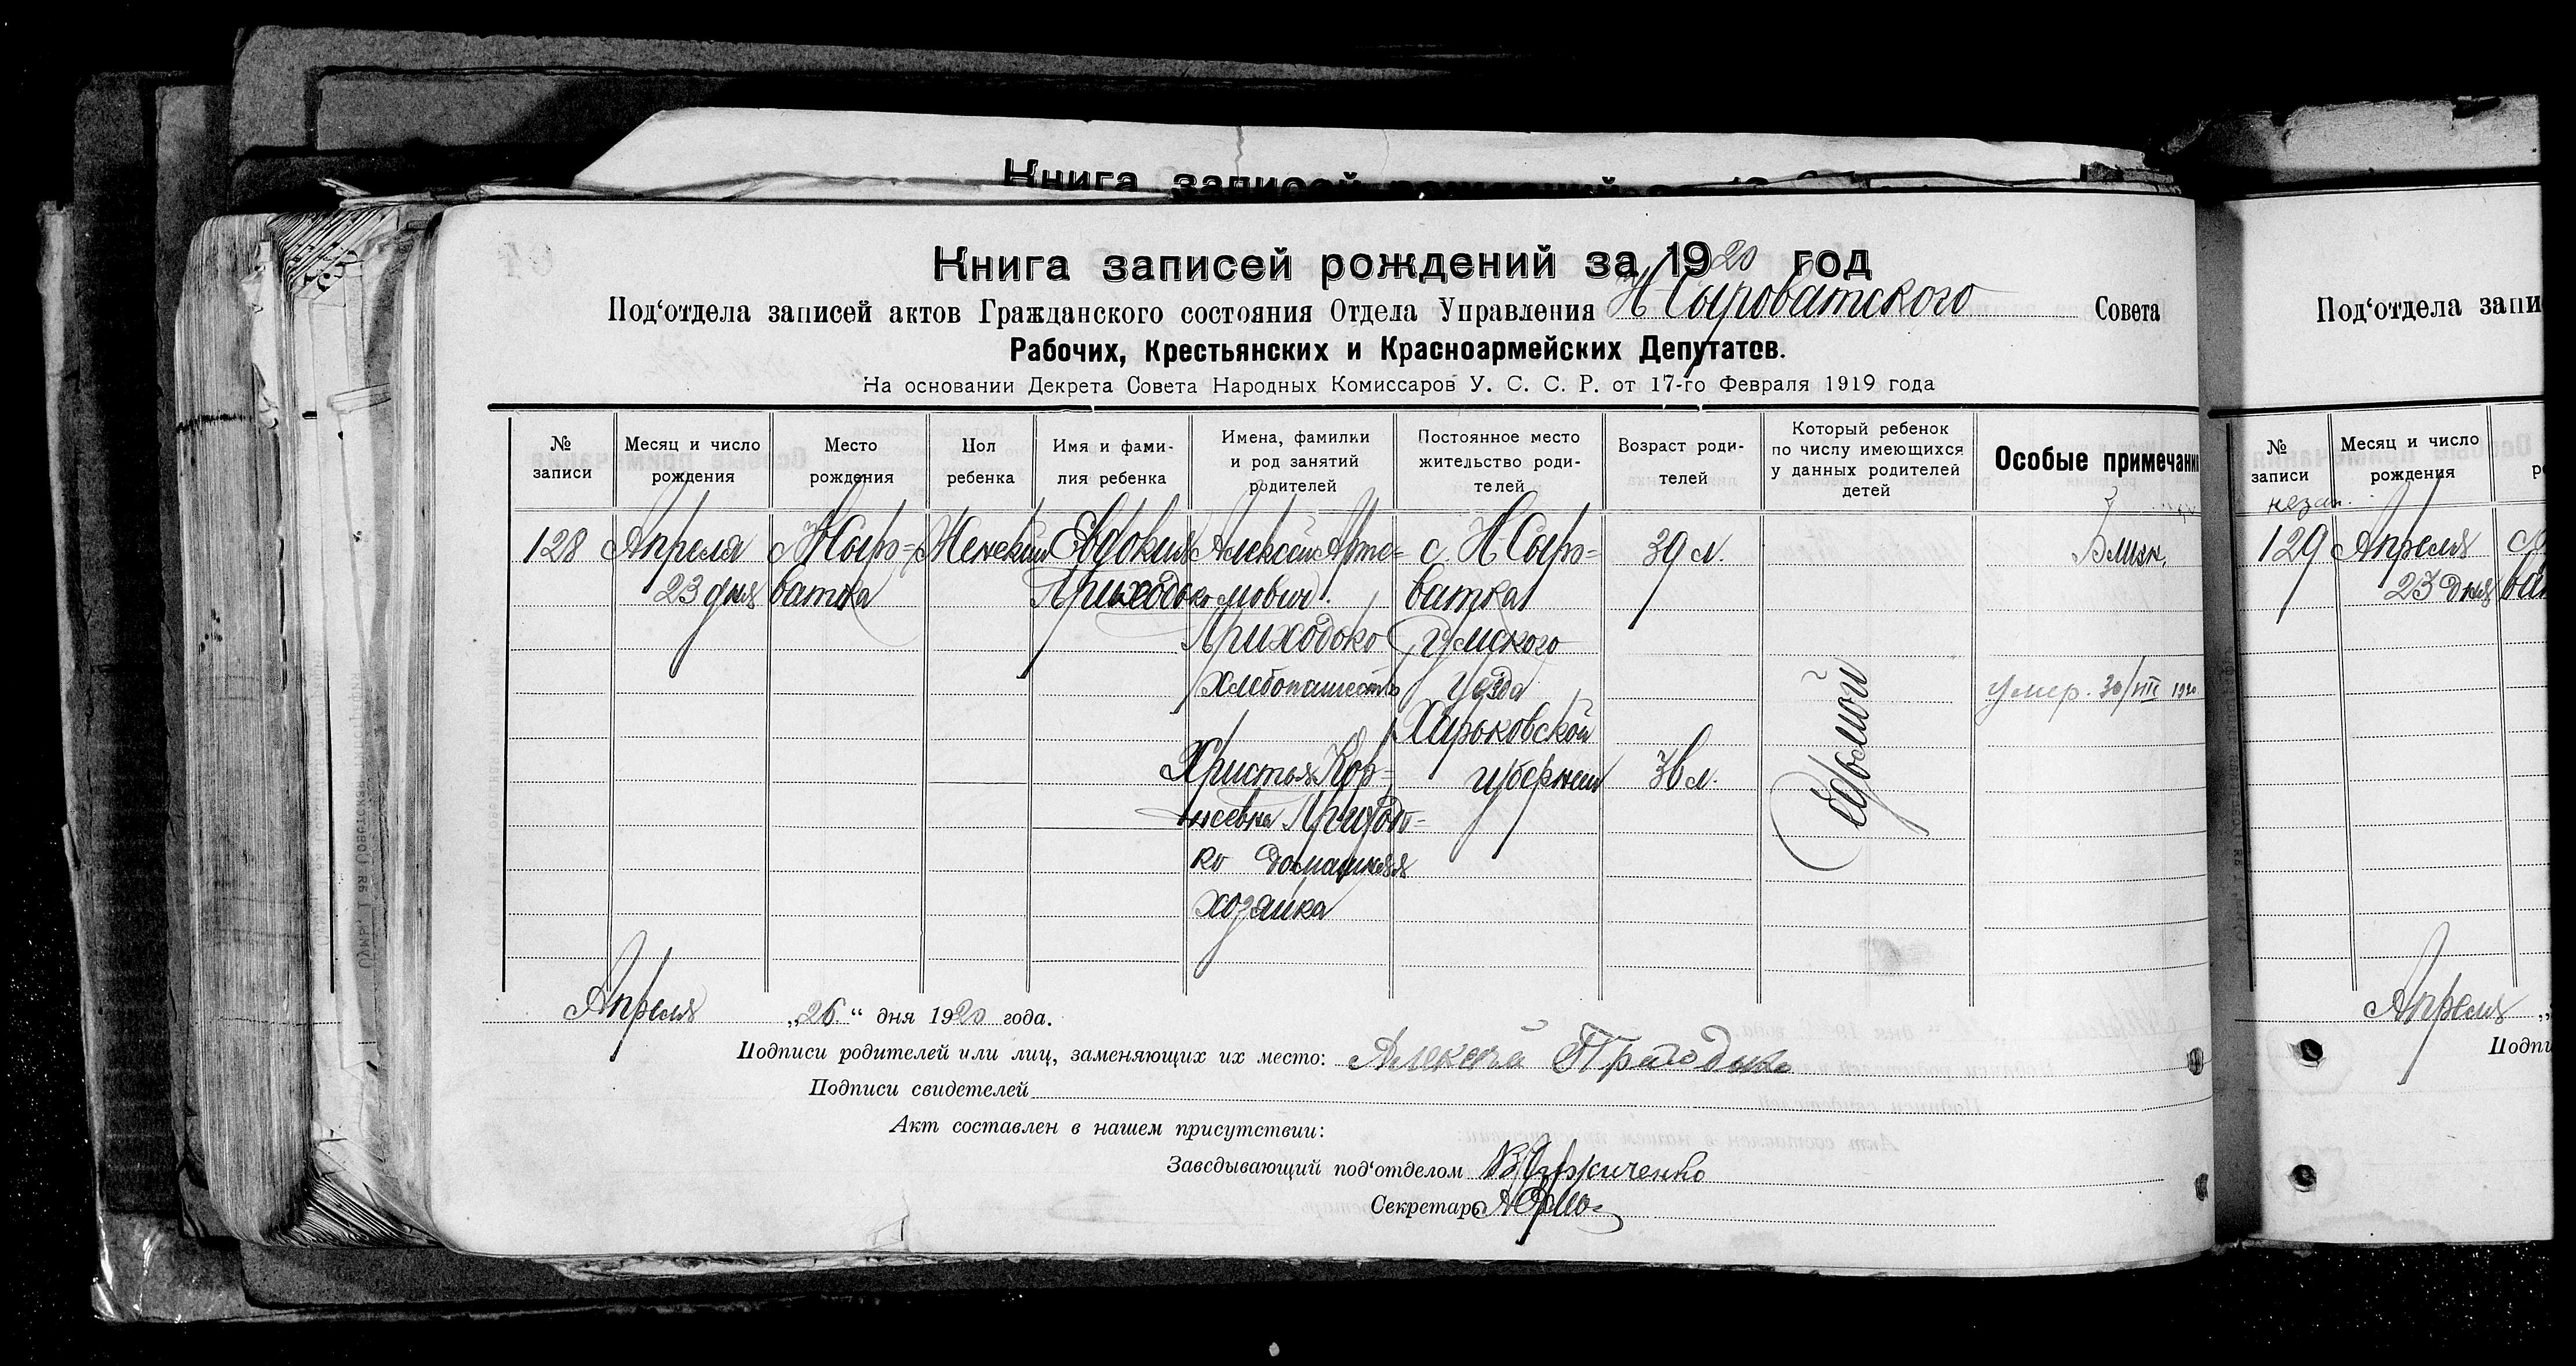 Книга записей рождений за 1920 год
Под‘отдела записей актов Гражданского состояния Отдела Управления Н Сыроватского Совета
Рабочих, Крестьянских и Красноармейских Депутатов.
На основании Декрета Совета Народных Комиссаров У. С. С. Р. от 17-го Февраля 1919 года
№ записи
Месяц и число рождения
Место рождения
Пол ребенка
Имя и фами-
лия ребенка
Имена, фамилки
и род занятий
родителей
Постоянное место
жительство роди-
телей
Возраст роди-
телей
Который ребенок
по числу имеющихся
у данных родителей
детей
Особые примечани
128 Апреля с Н Сыро= Женский Евдокия Алексей Арте= с. Н Сыро= 39 л. Близн.
23 дня ватка Приходько мович ватка
Приходько Сумского
хлебопашество уезда умер. 30/VIII 1920
Харьковской
Христья Кор= губернии 36 л. седьмой
неевна Приходь=
ко домашняя
хозяйка
Апреля „26“ дня 1920 года.
Подписи родителей или лиц, заменяющих их место: Алексей
Подписи свидетелей
Акт составлен в нашем присутствии:
Заведывающий под‘отделом
Секретарь
Под‘отдела запи
№ записи
Месяц и число рождения
незак.
129 Апреля
23 дня
Апреля
Подпи